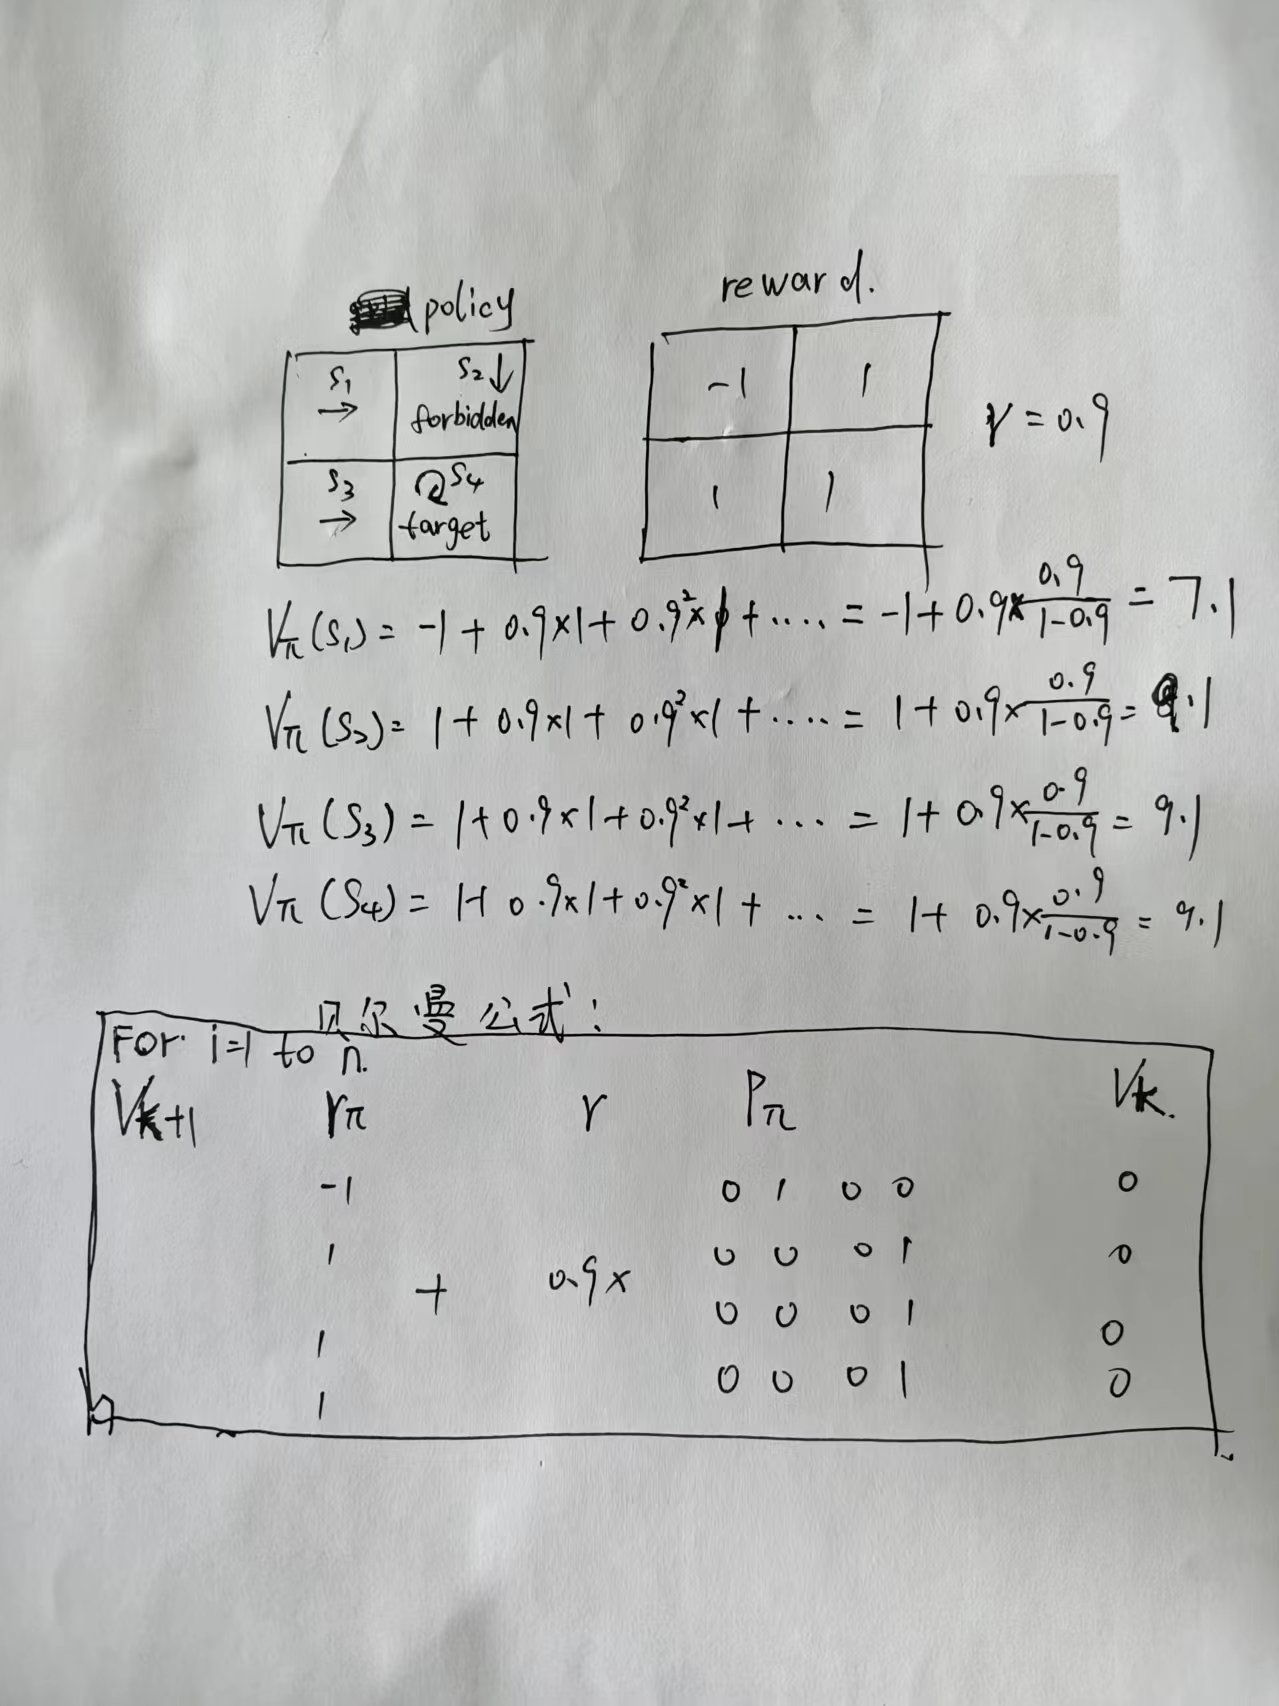 policy
reward.
S₁ → S₂ ↓ forbidden
S₃ → S₄ target
-1 1
1 1
γ = 0.9
Vπ(S₁) = -1 + 0.9×1 + 0.9²×1 + .... = -1 + 0.9× 0.9/(1-0.9) = 7.1
Vπ(S₂) = 1 + 0.9×1 + 0.9²×1 + .... = 1 + 0.9× 0.9/(1-0.9) = 9.1
Vπ(S₃) = 1 + 0.9×1 + 0.9²×1 + ... = 1 + 0.9× 0.9/(1-0.9) = 9.1
Vπ(S₄) = 1 + 0.9×1 + 0.9²×1 + ... = 1 + 0.9× 0.9/(1-0.9) = 9.1
贝尔曼公式:
For i=1 to n.
Vk+1 rπ γ Pπ Vk.
-1 0 1 0 0 0
1 + 0.9× 0 0 0 1 0
1 0 0 0 1 0
1 0 0 0 1 0